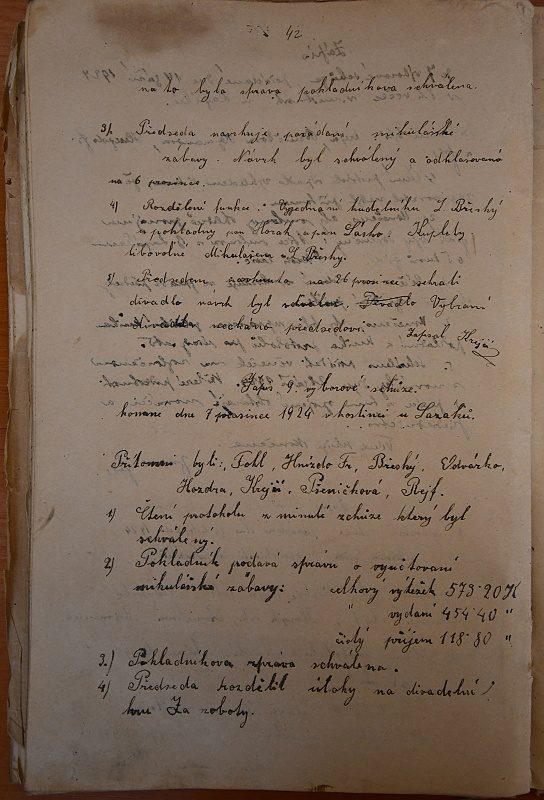 42
na to byla správa pokladníkova schválena.
3). Předseda navrhuje pořádaní mikulášské
zábavy. Návrh byl schválený a odhlasováno
na 6 prosince.
4) Rozdělení funkce. Vyjednání hudebníku J. Břeský
a pokladny pan Horák a pan Sásko. Kuplety
libovolne Mikulášem J. Břeský.
5) Předsedem navrhnuto na 26 prosinec sehrati
divadlo navrh byl schválen. Divadlo Vybraní
divadla necháno předsedovi. Zapsal Krejčí
Zápis 9. výborové schůze.
konané dne 7 prosince 1924 v hostinci u Sazáků.
Přítomni byli: Fohl, Hnízdo Fr, Břeský, Edvárko,
Hozdra, Krejčí, Pšeničková, Rejf.
1) Čtení protokolu z minulé zchůze který byl
schválený.
2) Pokladník podává správu o vyúčtovaní
mikulášské zábavy: celkový výtěžek 573·20 K
" vydaní 454·40 "
čistý příjem 118·80 "
3.) Pokladníkova zpráva schválena.
4) Předseda rozdělil úlohy na divadelní
hru Za roboty.